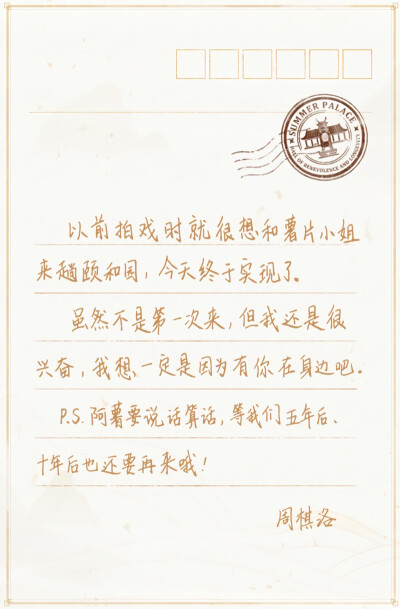 SUMMER PALACE
HALL OF BENEVOLENCE AND LONGEVITY
以前拍戏时就很想和薯片小姐
来趟颐和园，今天终于实现了。
虽然不是第一次来，但我还是很
兴奋，我想，一定是因为有你在身边吧。
P.S.阿薯要说话算话，等我们五年后、
十年后也还要再来哦！
周棋洛